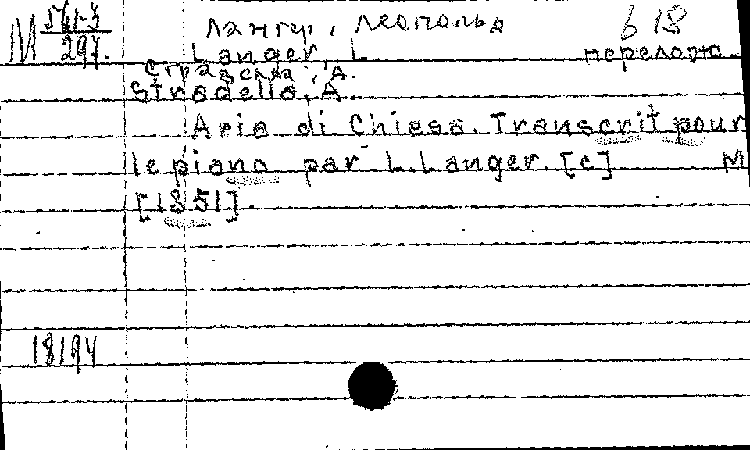 М 561-3/297. Лангер, Леопольд 618
Langer, L. перелож.
Страделла, А.
Stradella, A.
Aria di Chiesa. Transcrit pour
le piano par L. Langer. [c] М
[1851].
18194